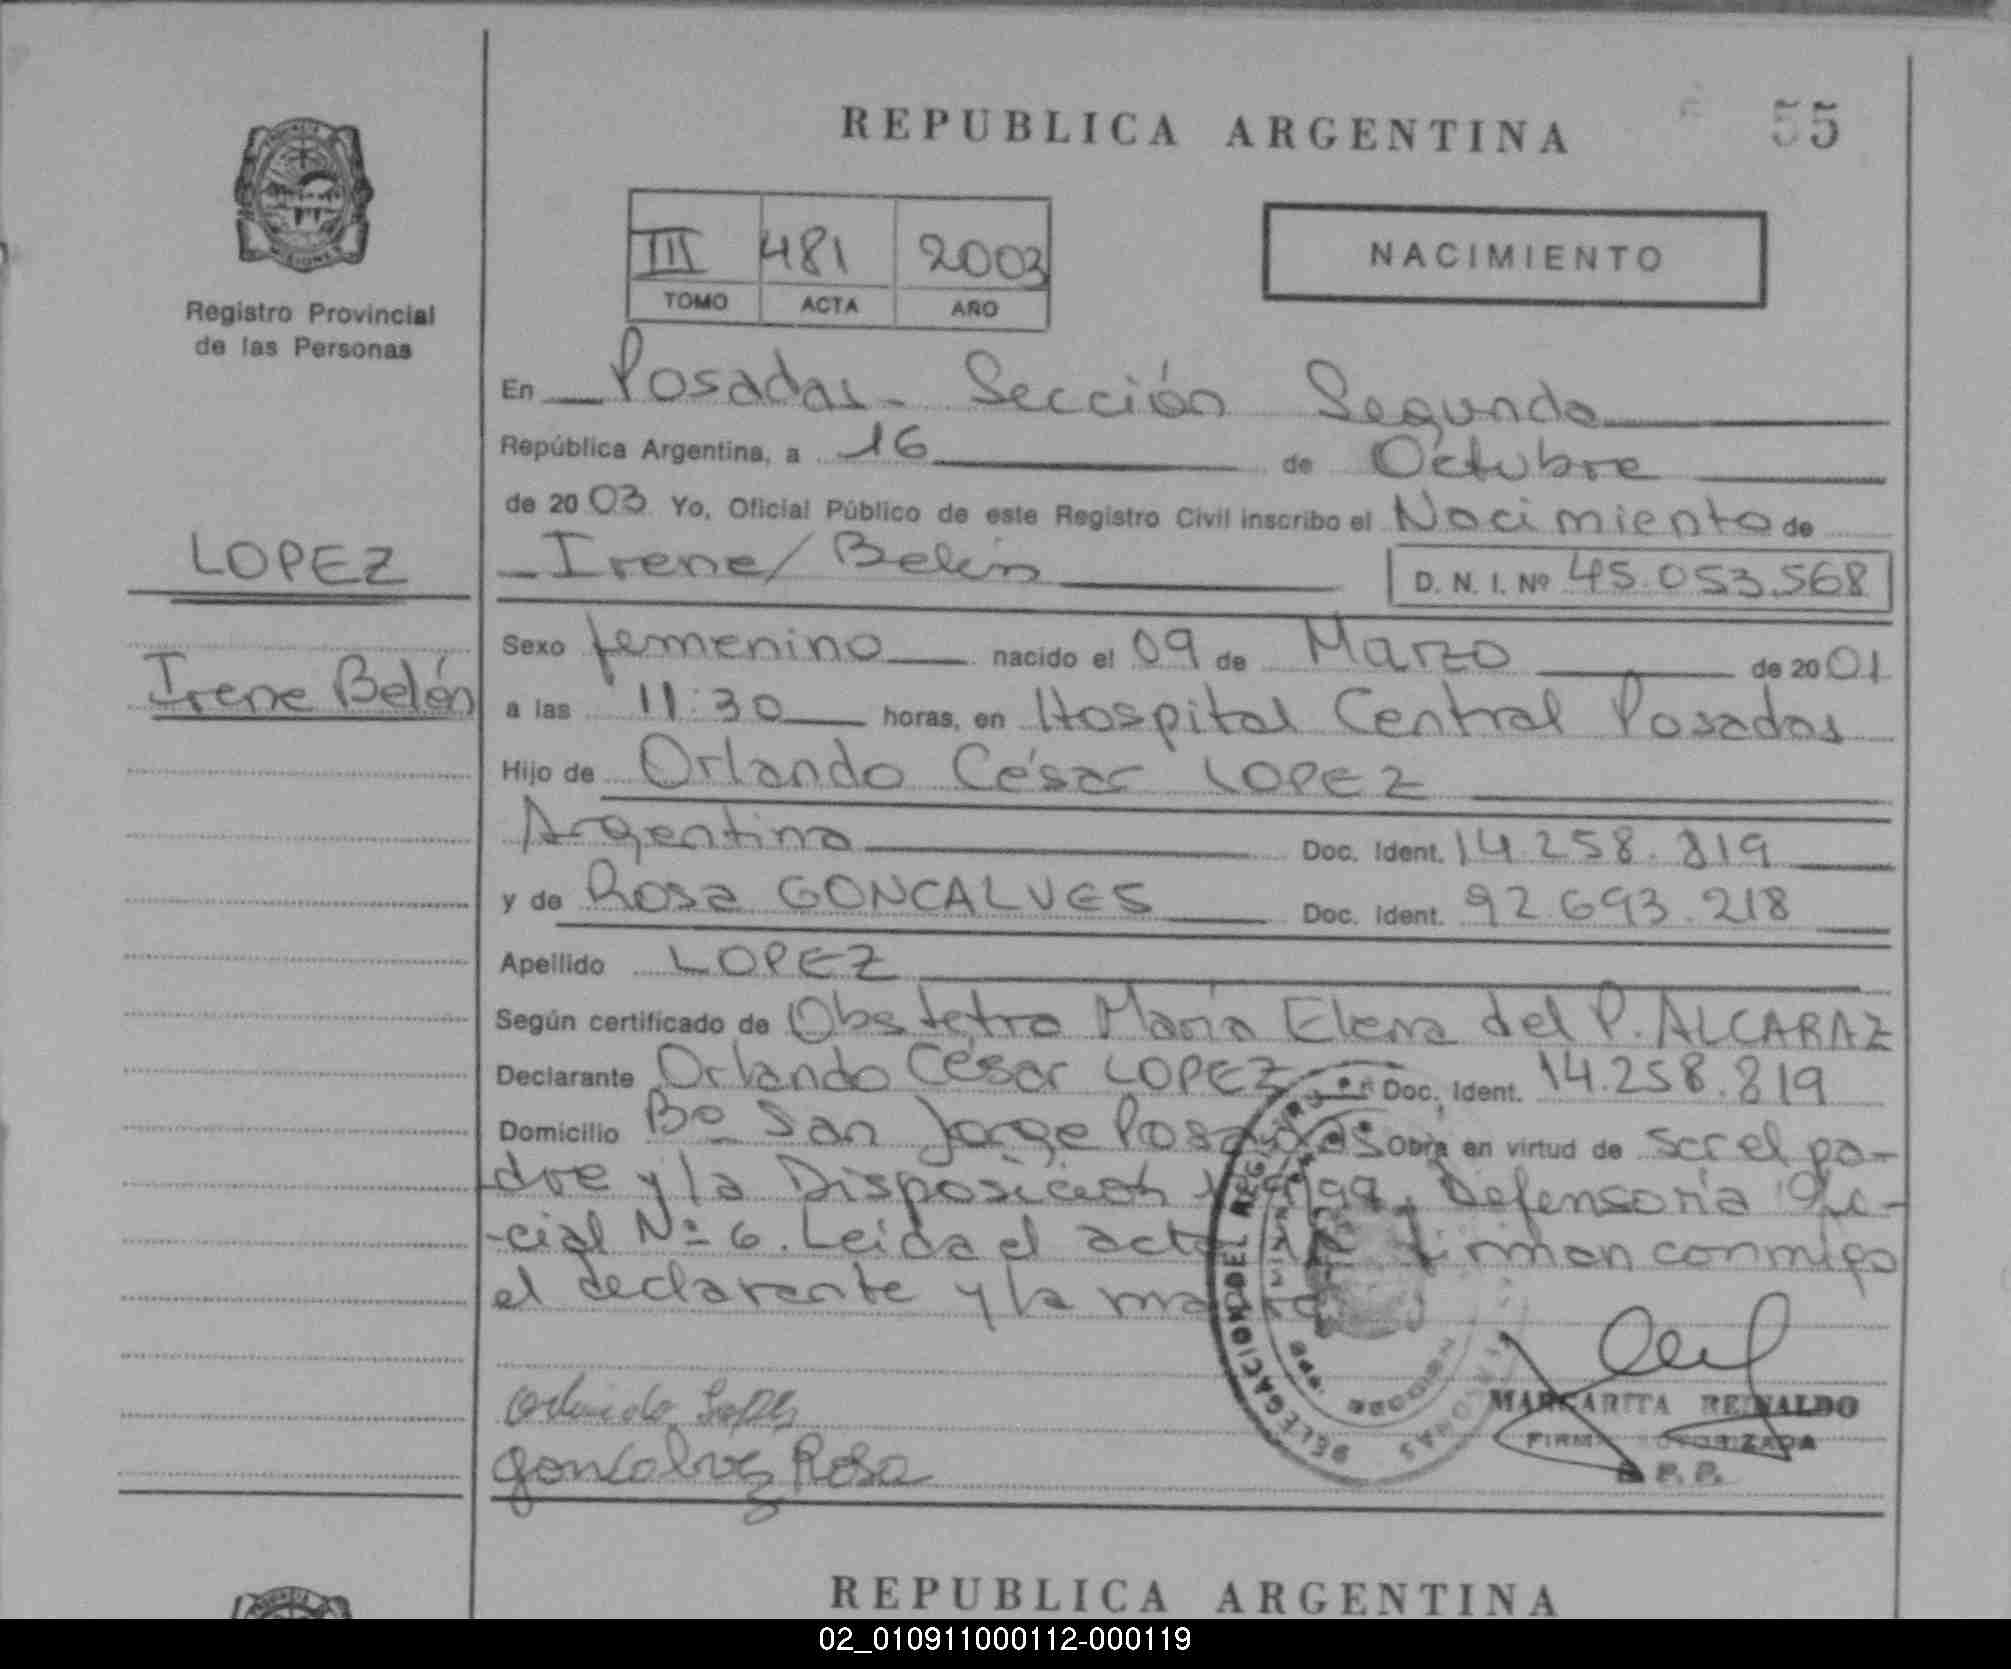 REPUBLICA ARGENTINA
55
III 481 2003
TOMO ACTA AÑO
NACIMIENTO
Registro Provincial
de las Personas
En Posadas - Sección Segunda
República Argentina, a 16 de Octubre
de 2003 Yo, Oficial Público de este Registro Civil inscribo el Nacimiento de
Irene/ Belén D. N. I. Nº 45.053.568
LOPEZ
Irene Belén
Sexo femenino nacido el 09 de Marzo de 2001
a las 11:30 horas, en Hospital Central Posadas
Hijo de Orlando César LOPEZ
Argentina Doc. Ident. 14.258.819
y de Rosa GONCALVES Doc. Ident. 92.693.218
Apellido LOPEZ
Según certificado de Obstetra María Elena del P. ALCARAZ
Declarante Orlando César LOPEZ Doc. Ident. 14.258.819
Domicilio Bº San Jorge Posadas Obra en virtud de ser el pa-
dre y la Disposición Defensoría Ofi-
-cial Nº 6. Leída el acta firman conmigo
el declarante y la
Orlando Lopez
Goncalvez Rosa
DELEGACION DEL REG
MARGARITA REINALDO
FIRMA AUTORIZADA
R. P. P.
REPUBLICA ARGENTINA
02_010911000112-000119